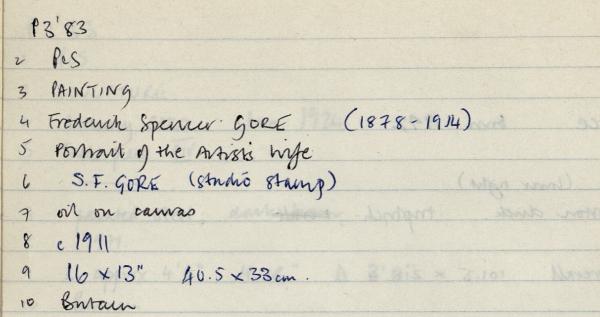 P3'83
2 PCS
3 PAINTING
4 Frederick Spencer GORE (1878-1914)
5. Portrait of the Artist's Wife
6 S.F. GORE (studio stamp)
7 oil on canvas
8 c 1911
9 16 x 13" 40.5 x 33 cm.
10 Britain